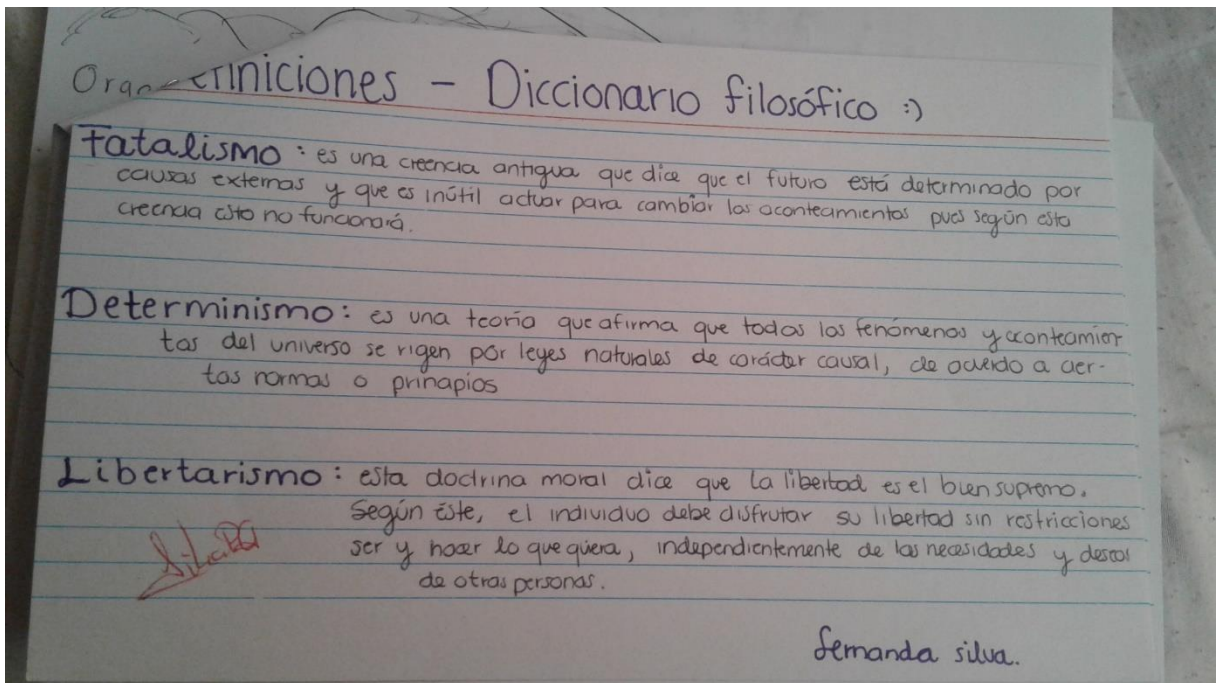 Orga
finiciones - Diccionario filosófico :)
Fatalismo : es una creencia antigua que dice que el futuro está determinado por
causas externas y que es inútil actuar para cambiar los acontecimientos pues según esta
creencia esto no funcionará.
Determinismo : es una teoría que afirma que todos los fenómenos y acontecimien
tos del universo se rigen por leyes naturales de carácter causal, de acuerdo a cier-
tas normas o principios
Libertarismo : esta doctrina moral dice que la libertad es el bien supremo.
Según éste, el individuo debe disfrutar su libertad sin restricciones
ser y hacer lo que quiera, independientemente de las necesidades y deseos
de otras personas.
fernanda silva.